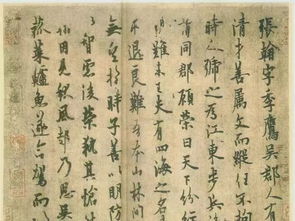 張翰字季鷹吳郡人有
清才善屬文而縱任不拘
時人號之為江東步兵
謂同郡顧榮曰天下紛
禍難未已夫有四海之名
求退良難吾本山林間
無望於時子善以明防
以智慮後榮執其愴
翰因見秋風起乃思吳
菰菜鱸魚遂命駕而